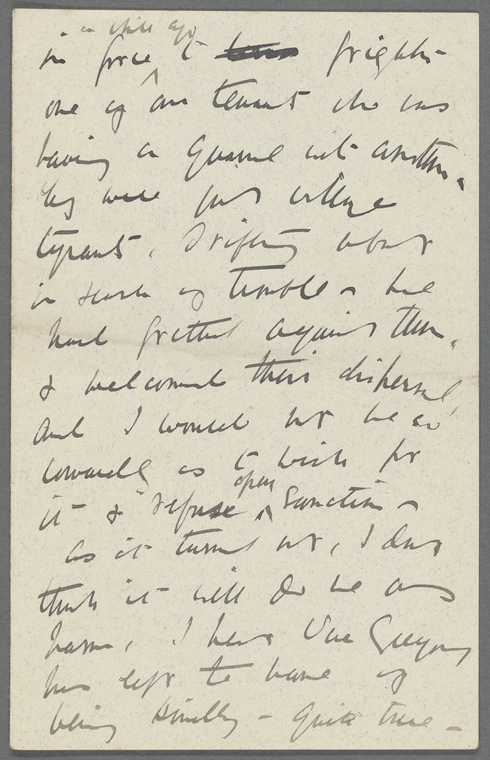 a while ago
in force to frighten
one of our tenants who was
having a quarrel with another -
they were just village
tyrants, drifting about
in search of trouble - he
had against them,
& welcomed their dispersal
and I would not be so
cowardly as to wish for
it & refuse open sanction -
as it turned out, I don't
think it will do me any
harm, I hear Vere Gregory
has left the name of
being kindly - quite true -